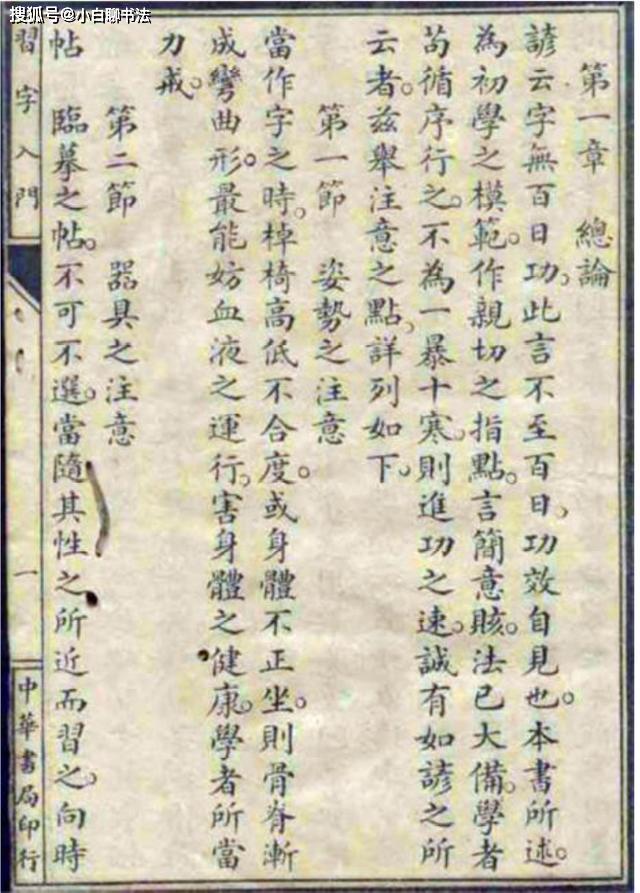 搜狐号@小白聊书法
第一章　總論
諺云字無百日功。此言不至百日、功效自見也。本書所述。
為初學之模範。作親切之指點。言簡意賅。法已大備。學者
苟循序行之。不為一暴十寒。則進功之速。誠有如諺之所
云者。茲舉注意之點、詳列如下。
第一節　姿勢之注意
當作字之時。棹椅高低不合度。或身體不正坐。則骨脊漸
成彎曲形。最能妨血液之運行。害身體之健康。學者所當
力戒。
第二節　器具之注意
帖　臨摹之帖。不可不選。當隨其性之所近而習之。向時
習字入門
一
中華書局印行